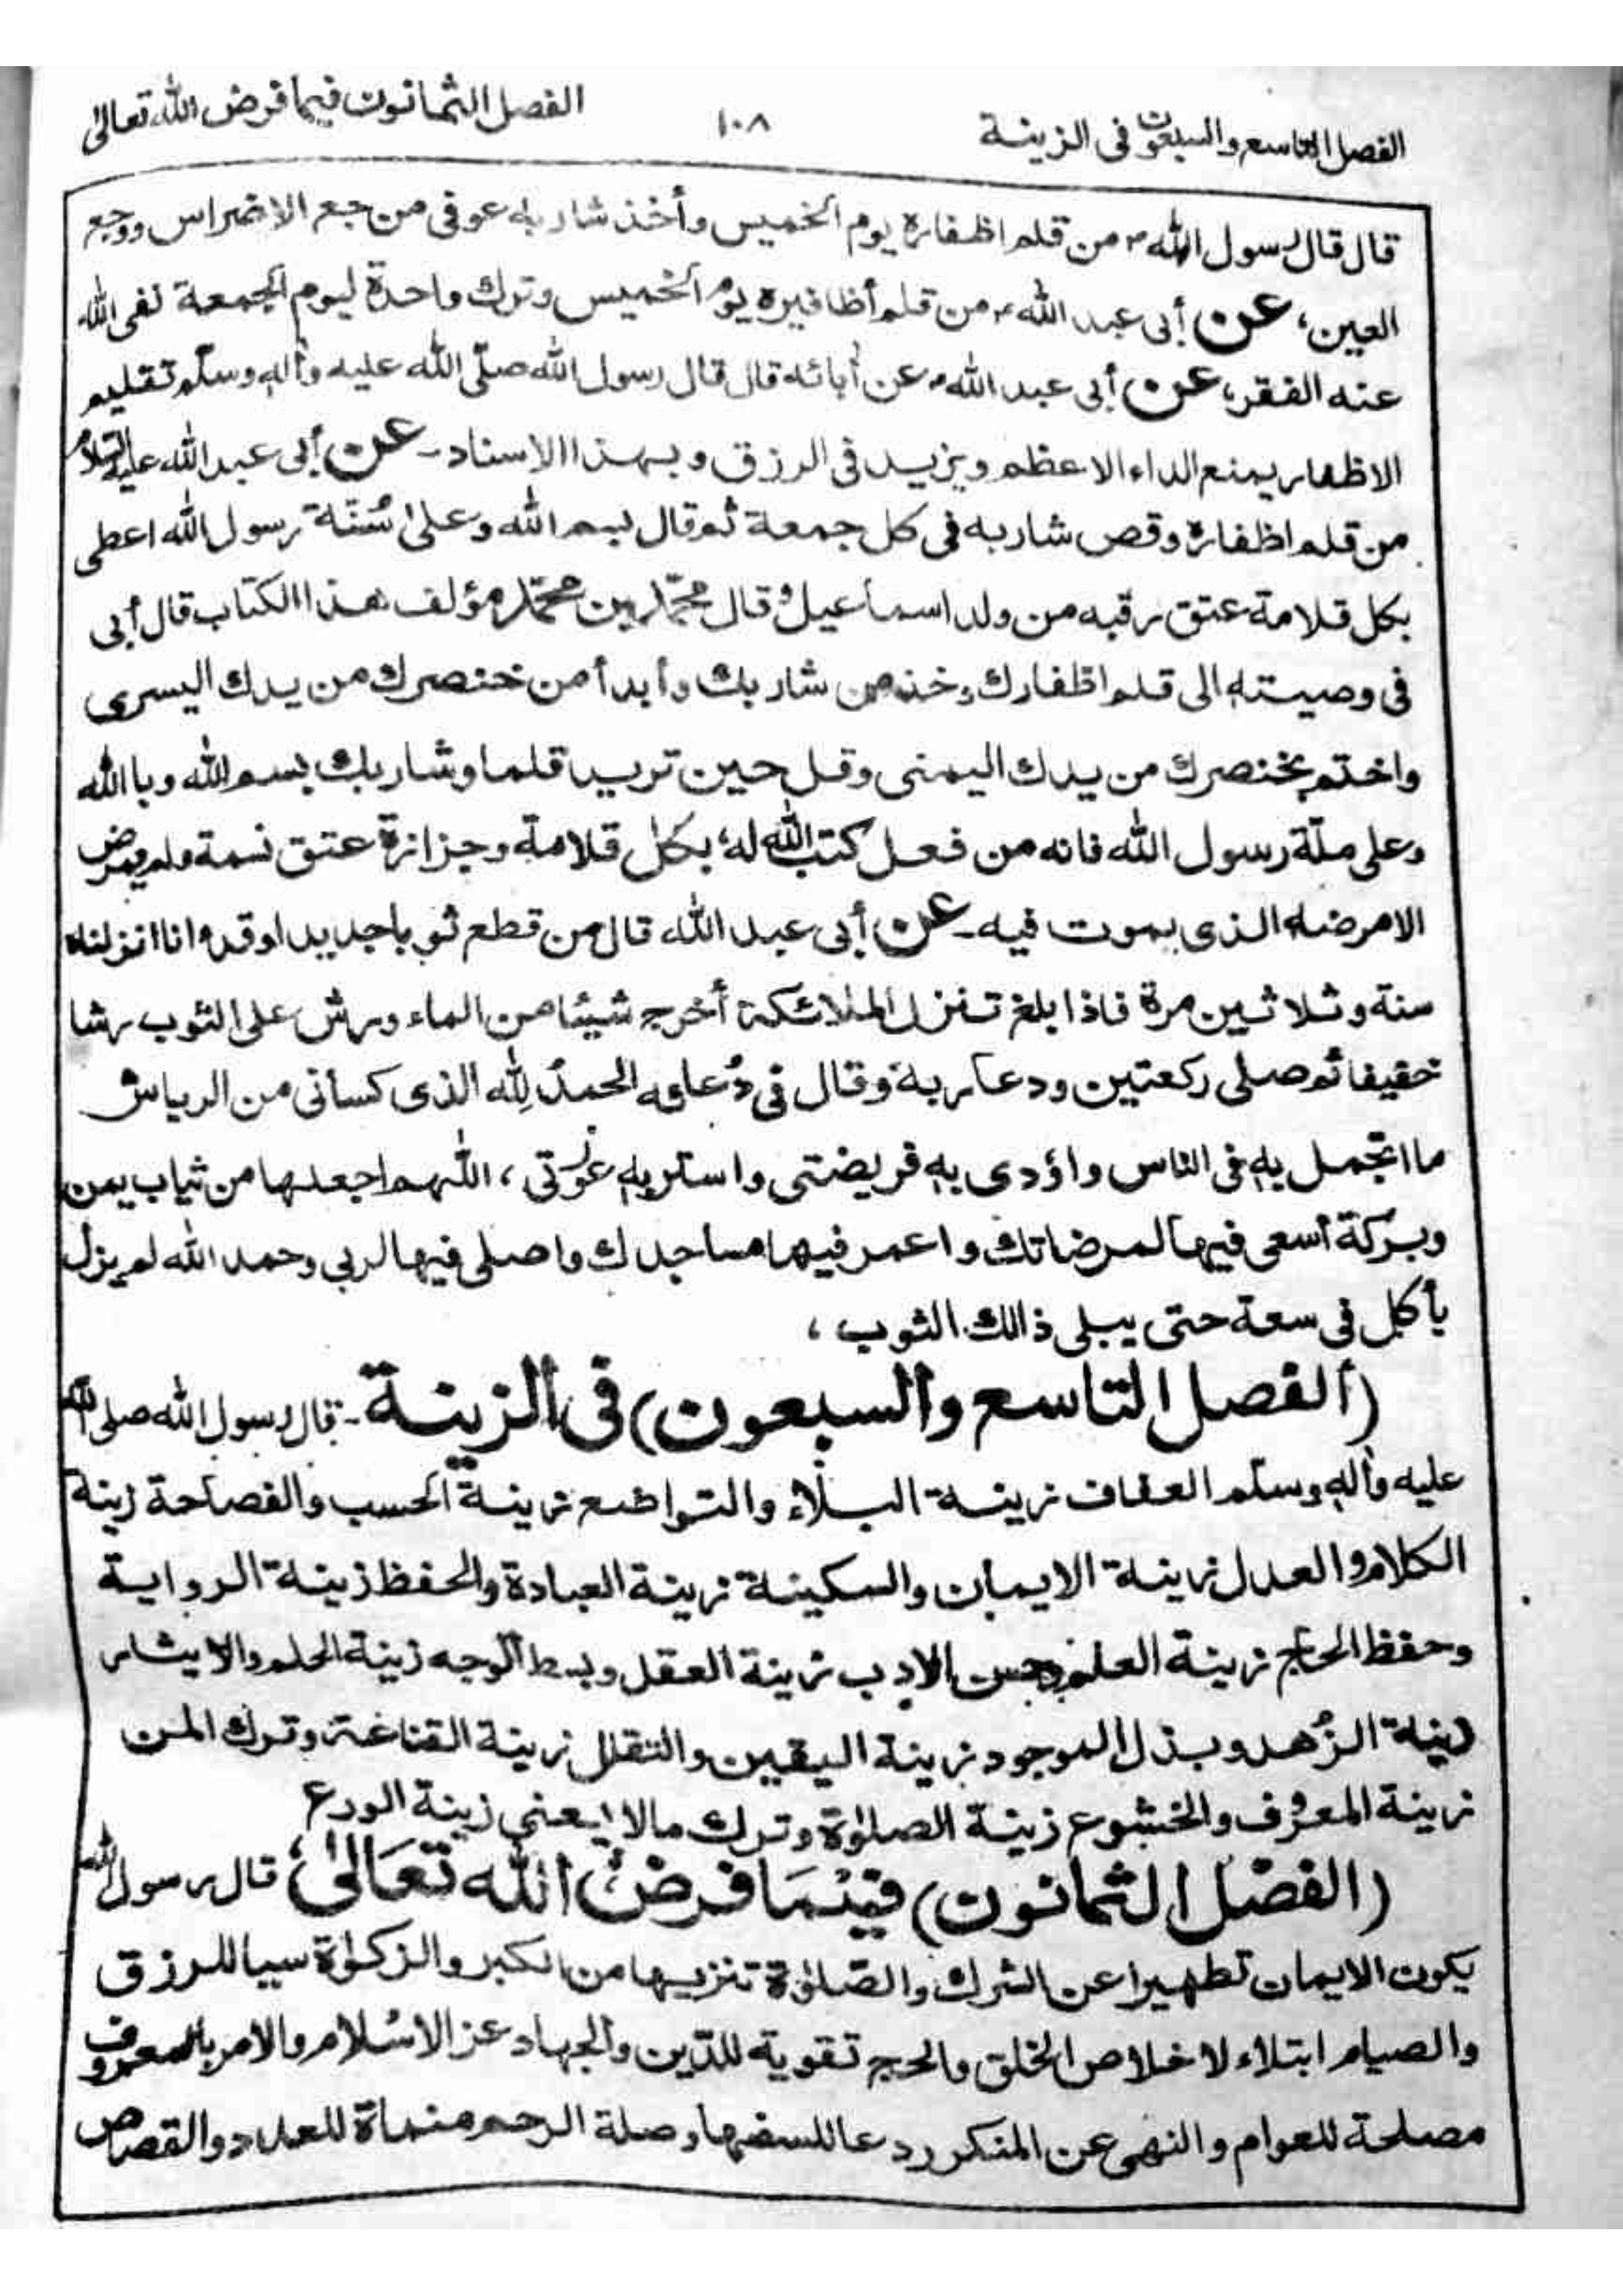 الفصل التاسع والسبعون فى الزينة ١٠٨ الفصل الثمانون فيما فرض الله تعالىٰ
قال قال رسول الله ؐ من قلم اظفاره يوم الخميس وأخذ شاربه عوفى من جع الاضراس ووجع
العين، عن أبى عبد الله ؑ من قلم أظافيره يوم الخميس وترك واحدة ليوم الجمعة نفى الله
عنه الفقر، عن أبى عبد الله ؑ عن أبائه قال قال رسول الله صلّى الله عليه وأله وسلّم تقليم
الاظفار يمنع الداء الاعظم ويزيد فى الرزق وبهذا الاسناد - عن أبى عبد الله عليه السّلام
من قلم اظفاره وقص شاربه فى كل جمعة ثم قال بسم الله وعلىٰ سُنّة رسول الله اعطى
بكل قلامة عتق رقبه من ولد اسماعيل وقال محمّد بن محمّد مؤلف هذا الكتاب قال أبى
فى وصيته الى قلم اظفارك وخذ من شاربك وأبدأ من خنصرك من يدك اليسرى
واختم بخنصرك من يدك اليمنى وقل حين تريد قلما وشاربك بسم الله وبا الله
وعلى ملّة رسول الله فانه من فعل كتب الله له بكل قلامة وجزازة عتق نسمة ولم يمرض
الامرضه الذى يموت فيه - عن أبى عبد الله قال من قطع ثوبا جديدا وقرء انا انزلناه
ستة وثلاثين مرة فاذا بلغ تنزل الملائكة أخرج شيئا من الماء ورش على الثوب رشا
خفيفا ثم صلى ركعتين ودعا ربه وقال فى دُعائه الحمدُ لِله الذى كسأنى من الرياش
ما اتجمل به فى الناس واؤدى به فريضتى واستر به عورتى، اللهم اجعلها من ثياب يمن
وبركة أسعى فيها لمرضاتك واعمر فيها مساجدك واصلى فيها لربي وحمد الله لم يزل
يأكل فى سعة حتى يبلى ذالك الثوب،
(ألفصل التاسع والسبعون) فى الزينة - قال رسول الله صلى الله
عليه وأله وسلّم العفاف زينة البلاء والتواضع زينة الحسب والفصاحة زينة
الكلام والعدل زينة الايمان والسكينة زينة العبادة والحفظ زينة الرواية
وحفظ الحاج زينة العلم وحسن الادب زينة العقل وبسط الوجه زينة الحلم والايثار
زينة الزُهد وبذل الموجود زينة اليقين والتقلل زينة القناعة وترك المن
زينة المعروف والخشوع زينة الصلوٰة وترك مالا يعنى زينة الورع
(الفصل الثمانون) فيْمَا فرض الله تَعَالىٰ، قال رسول الله
يكون الايمان تطهيرا عن الشرك والصّلوٰة تنزيها من الكبر والزكوٰة سببا للرزق
والصيام ابتلاء لاخلاص الخلق والحج تقوية للدّين والجهاد عز الاسْلام والامر بالمعروف
مصلحة للعوام والنهى عن المنكر ردعا للسفها وصلة الرحم منماة للعدد والقصاص